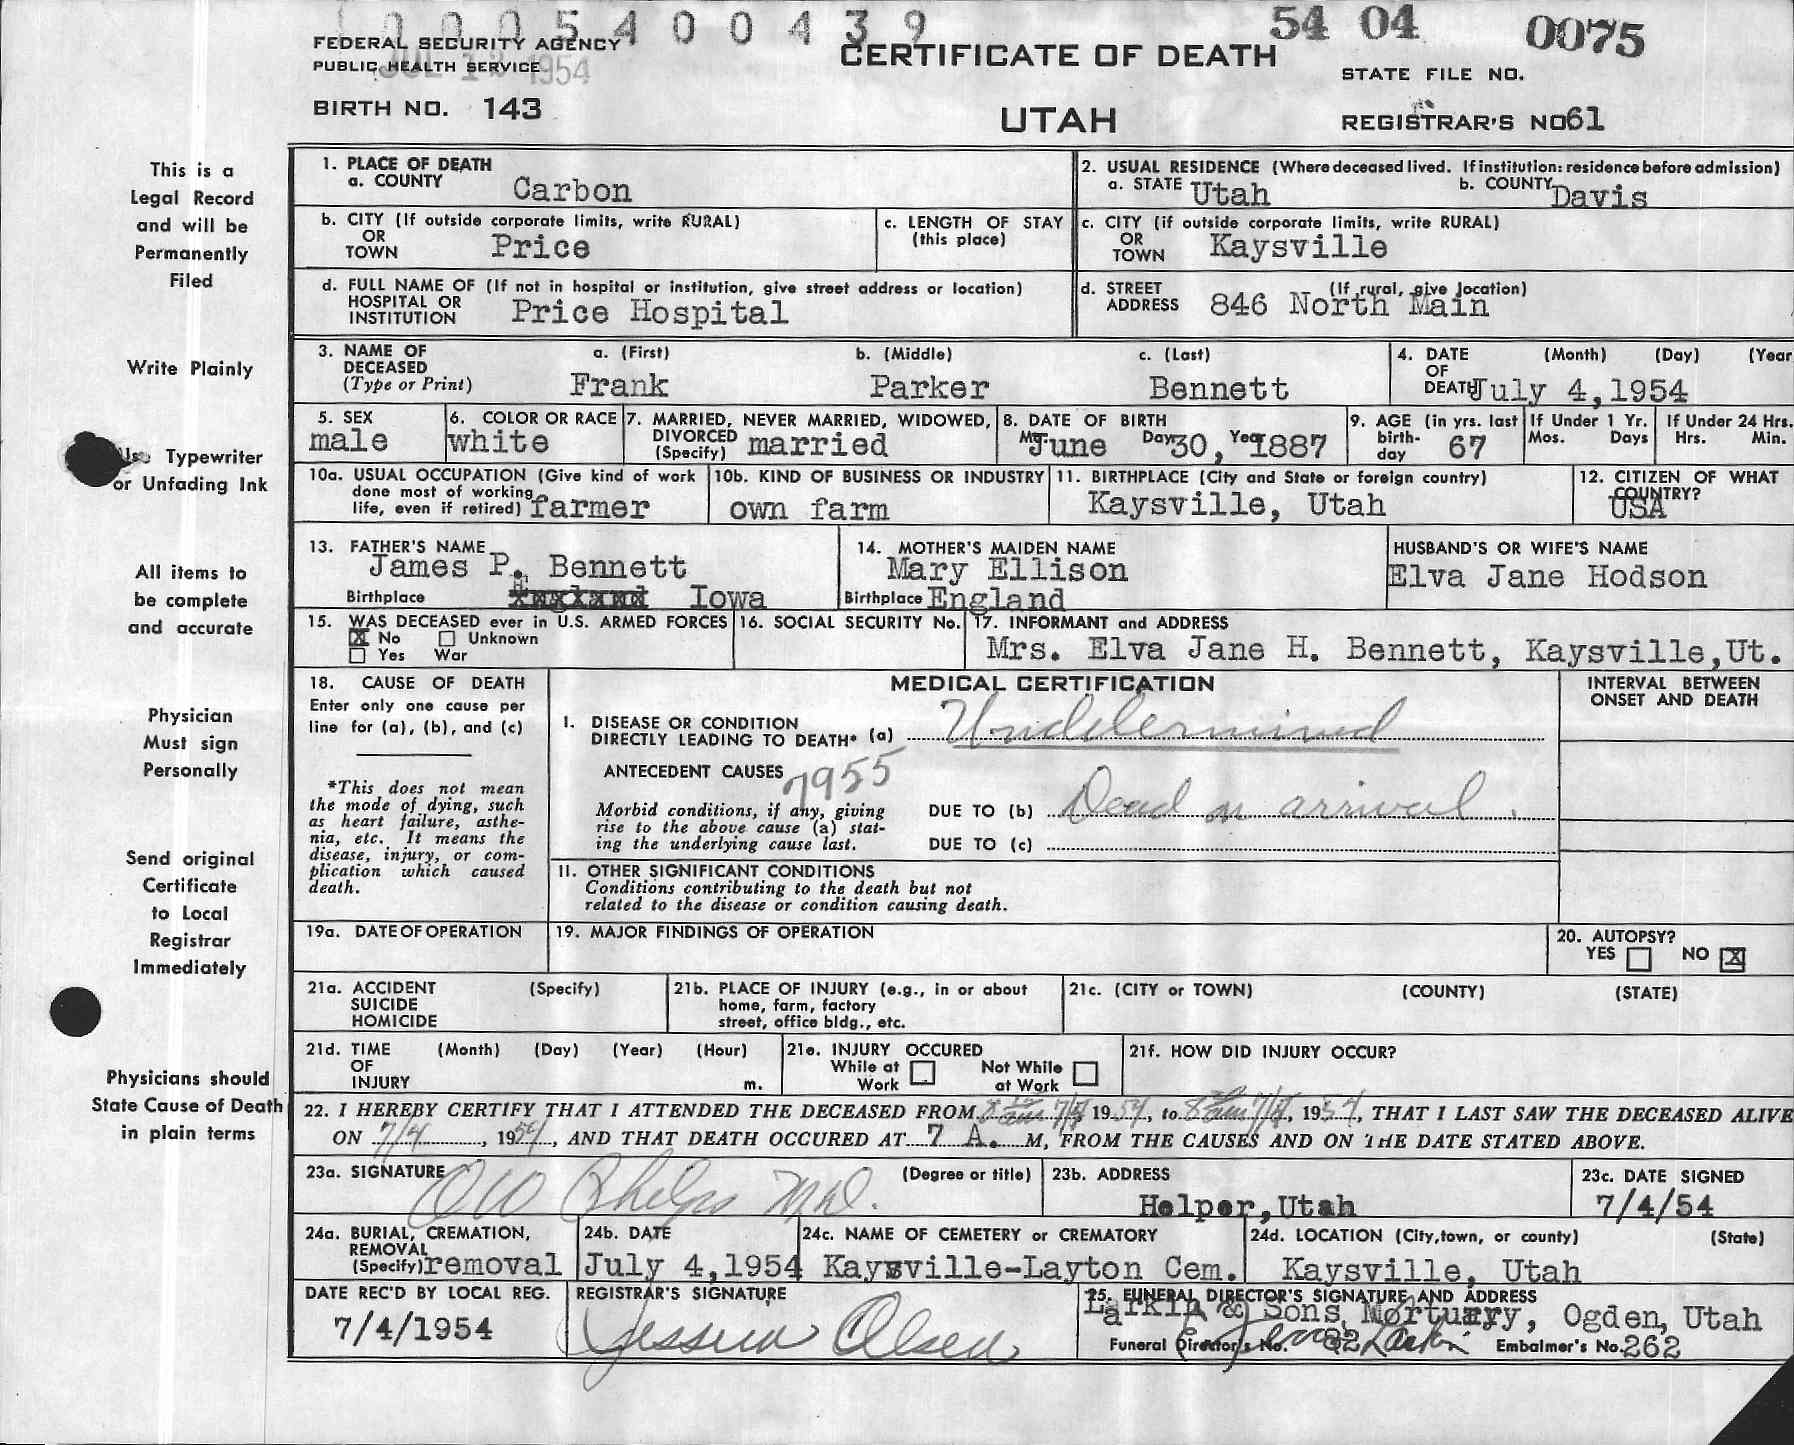 1 0 0 0 5 4 0 0 4 3 9
54 04 0075
FEDERAL SECURITY AGENCY
PUBLIC HEALTH SERVICE
JUL 1954
CERTIFICATE OF DEATH
STATE FILE NO.
BIRTH NO. 143
UTAH
REGISTRAR'S NO 61
This is a
Legal Record
and will be
Permanently
Filed
Write Plainly
Use Typewriter
or Unfading Ink
All items to
be complete
and accurate
Physician
Must sign
Personally
Send original
Certificate
to Local
Registrar
Immediately
Physicians should
State Cause of Death
in plain terms
1. PLACE OF DEATH
a. COUNTY Carbon
2. USUAL RESIDENCE (Where deceased lived. If institution: residence before admission)
a. STATE Utah b. COUNTY Davis
b. CITY (If outside corporate limits, write RURAL)
OR
TOWN Price
c. LENGTH OF STAY
(this place)
c. CITY (if outside corporate limits, write RURAL)
OR
TOWN Kaysville
d. FULL NAME OF (If not in hospital or institution, give street address or location)
HOSPITAL OR
INSTITUTION Price Hospital
d. STREET (If rural, give location)
ADDRESS 846 North Main
3. NAME OF DECEASED
(Type or Print)
a. (First) b. (Middle) c. (Last)
Frank Parker Bennett
4. DATE OF DEATH (Month) (Day) (Year
July 4, 1954
5. SEX
male
6. COLOR OR RACE
white
7. MARRIED, NEVER MARRIED, WIDOWED,
DIVORCED
(Specify) married
8. DATE OF BIRTH
Mo. June Day 30, Year 1887
9. AGE (in yrs. last
birth-
day 67
If Under 1 Yr.
Mos. Days
If Under 24 Hrs.
Hrs. Min.
10a. USUAL OCCUPATION (Give kind of work
done most of working
life, even if retired) farmer
10b. KIND OF BUSINESS OR INDUSTRY
own farm
11. BIRTHPLACE (City and State or foreign country)
Kaysville, Utah
12. CITIZEN OF WHAT
COUNTRY?
USA
13. FATHER'S NAME
James P. Bennett
Birthplace Iowa
14. MOTHER'S MAIDEN NAME
Mary Ellison
Birthplace England
HUSBAND'S OR WIFE'S NAME
Elva Jane Hodson
15. WAS DECEASED ever in U.S. ARMED FORCES
X No Unknown
Yes War
16. SOCIAL SECURITY No.
17. INFORMANT and ADDRESS
Mrs. Elva Jane H. Bennett, Kaysville, Ut.
18. CAUSE OF DEATH
Enter only one cause per
line for (a), (b), and (c)
*This does not mean
the mode of dying, such
as heart failure, asthe-
nia, etc. It means the
disease, injury, or com-
plication which caused
death.
MEDICAL CERTIFICATION
INTERVAL BETWEEN
ONSET AND DEATH
I. DISEASE OR CONDITION
DIRECTLY LEADING TO DEATH* (a) Undetermined
ANTECEDENT CAUSES 7955
Morbid conditions, if any, giving
rise to the above cause (a) stat-
ing the underlying cause last.
DUE TO (b) Dead on arrival.
DUE TO (c)
11. OTHER SIGNIFICANT CONDITIONS
Conditions contributing to the death but not
related to the disease or condition causing death.
19a. DATE OF OPERATION
19. MAJOR FINDINGS OF OPERATION
20. AUTOPSY?
YES NO X
21a. ACCIDENT (Specify)
SUICIDE
HOMICIDE
21b. PLACE OF INJURY (e.g., in or about
home, farm, factory
street, office bldg., etc.
21c. (CITY or TOWN) (COUNTY) (STATE)
21d. TIME (Month) (Day) (Year) (Hour)
OF
INJURY m.
21e. INJURY OCCURED
While at Work Not While at Work
21f. HOW DID INJURY OCCUR?
22. I HEREBY CERTIFY THAT I ATTENDED THE DECEASED FROM 1954, to 1954, THAT I LAST SAW THE DECEASED ALIVE
ON 7/4, 1954, AND THAT DEATH OCCURED AT 7 A. M, FROM THE CAUSES AND ON THE DATE STATED ABOVE.
23a. SIGNATURE (Degree or title)
OW Phelps M.D.
23b. ADDRESS
Helper, Utah
23c. DATE SIGNED
7/4/54
24a. BURIAL, CREMATION,
REMOVAL
(Specify) removal
24b. DATE
July 4, 1954
24c. NAME OF CEMETERY or CREMATORY
Kaysville-Layton Cem.
24d. LOCATION (City, town, or county) (State)
Kaysville, Utah
DATE REC'D BY LOCAL REG.
7/4/1954
REGISTRAR'S SIGNATURE
Jessica Olsen
25. FUNERAL DIRECTOR'S SIGNATURE AND ADDRESS
Larkin & Sons Mortuary, Ogden, Utah
Funeral Director's No. 82 Larkin Embalmer's No. 262